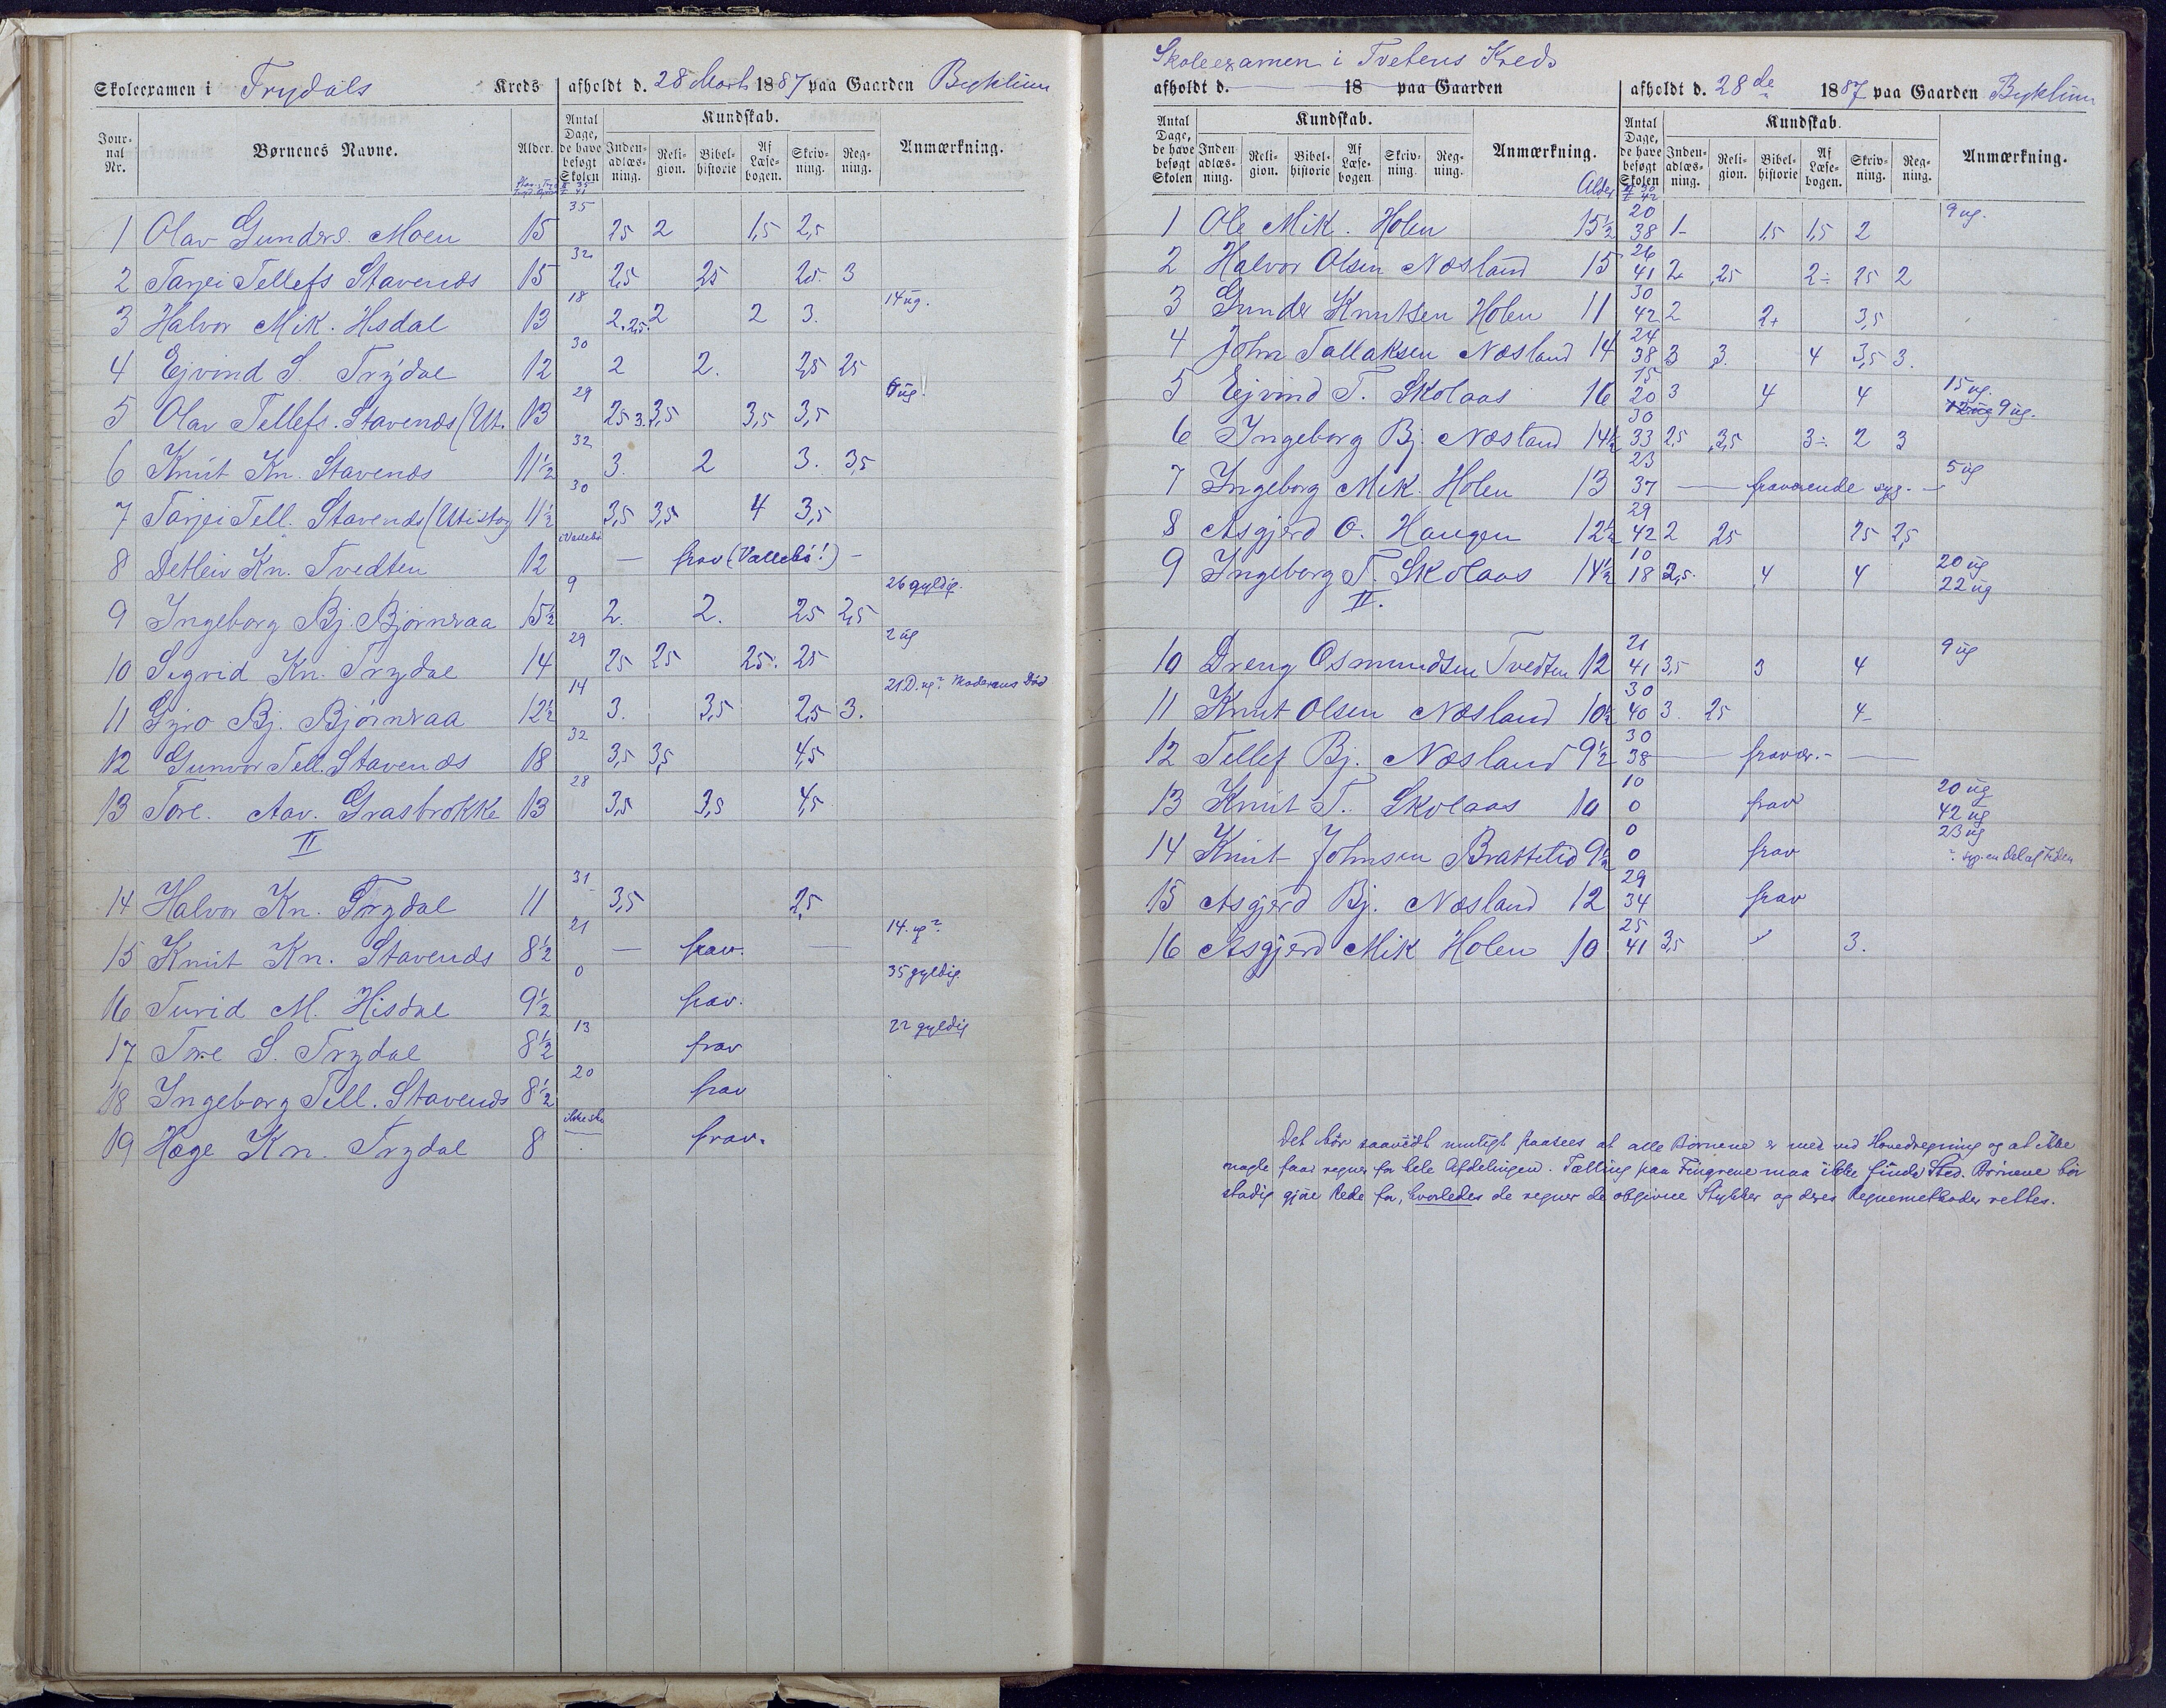 Skoleexamen i Trydals Kreds afholdt d. 28 Marts 1887 paa Gaarden Byklum
Jour-nal Nr. Børnenes Navne. Alder. Antal Dage, de have besøgt Skolen Kundskab. Anmærkning.
Inden-adlæs-ning. Reli-gion. Bibel-historie Af Læse-bogen. Skriv-ning. Reg-ning.
1 Olav Gunders. Moen 15 35 2,5 2 1,5 2,5
2 Tarjei Tellefs Stavenes 15 32 2,5 2,5 2,5 3
3 Halvor Mik. Hisdal 13 18 2. 2,5. 2 2 3. 14 ug.
4 Ejvind S. Trydal 12 30 2 2. 2,5 2,5
5 Olav Tellefs. Stavenes (Ut. 13 29 2,5 3. 3,5 3,5 3,5 6 ug!
6 Knut Kn. Stavenes 11½ 32 3. 2 3. 3,5
7 Tarjei Tell. Stavenes (Utistog 11½ 30 3,5 3,5 4 3,5
8 Detlev Kn. Tvedten 12 i Vallebø — frav (Vallebø!) —
9 Ingeborg Bj. Bjørnraa 15½ 9 2. 2. 2,5 2,5 26 gyldig.
10 Sigrid Kn. Trydal 14 29 2,5 2,5 2,5. 2,5 2 ug
11 Gyro Bj. Bjørnraa 12½ 14 3. 3,5 2,5 3. 21 D. ug? Moderens Død
12 Gunvor Tell. Stavenes 18 32 3,5 3,5 4,5
13 Tore. Aav. Grasbrokke 13 28 3,5 3,5 4,5
II
14 Halvor Kn. Trydal 11 31 3,5 2,5
15 Knut Kn. Stavenes 8½ 21 — frav. — 14. ug?
16 Turid M. Hisdal 9½ 0 frav. 35 gyldig.
17 Tore S. Trydal 8½ 13 frav 22 gyldig
18 Ingeborg Tell. Stavenes 8½ 20 frav
19 Hæge Kn. Trydal 8 frav.
Skoleexamen i Tvetens Kreds
afholdt d. 18 paa Gaarden afholdt d. 28de 1887 paa Gaarden Byklum
Antal Dage, de have besøgt Skolen Kundskab. Anmærkning. Antal Dage, de have besøgt Skolen Kundskab. Anmærkning.
Inden adlæs-ning. Reli-gion. Bibel-historie Af Læse-bogen Skriv-ning. Reg-ning. Alder Inden-adlæs-ning. Reli-gion. Bibel-historie Af Læse-bogen. Skriv-ning. Reg-ning.
1 Ole Mik. Holen 15½ 20 38 1- 1,5 1,5 2 9 ug.
2 Halvor Olsen Næsland 15 26 41 2+ 2,5 2÷ 2,5 2
3 Gunder Knutsen Holen 11 30 42 2 2+ 3,5
4 John Tallaksen Næsland 14 24 38 3 3. 4 3,5 3.
5 Ejvind T. Skolaas 16 15 20 3 4 4 15 ug. 12 ug 9 ug.
6 Ingeborg Bj. Næsland 14½ 30 33 2,5 3,5 3÷ 2 3
7 Ingeborg Mik. Holen 13 23 37 — fraværende syg. — 5 ug
8 Asgjerd O. Haugen 12½ 29 42 2 2,5 2,5 2,5
9 Ingeborg T. Skolaas 14½ 10 18 2,5. 4 4 20 ug 22 ug
II.
10 Dreng Osmundsen Tvedten 12 21 41 3,5 3 4 9 ug
11 Knut Olsen Næsland 10½ 30 40 3. 2,5 4-
12 Tellef Bj. Næsland 9½ 30 38 — fravær. — —
13 Knut T. Skolaas 10 10 0 frav 20 ug 42 ug
14 Knut Johnsen Brattelid 9½ 0 0 frav 23 ug ? syg. en Del af Tiden
15 Asgjerd Bj. Næsland 12 29 34 frav
16 Asgjerd Mik Holen 10 25 41 3,5 3.
Det bör saavidt muligt paasees at alle Børnene er med ved Hovedregning og at ikke
nogle faar regne for hele Afdelingen. Tælling paa Fingrene maa ikke finde Sted. Børnene bör
stadig gjöre Rede for, hvorledes de regner de opgivne Stykker og deres Regnemethoder rettes.